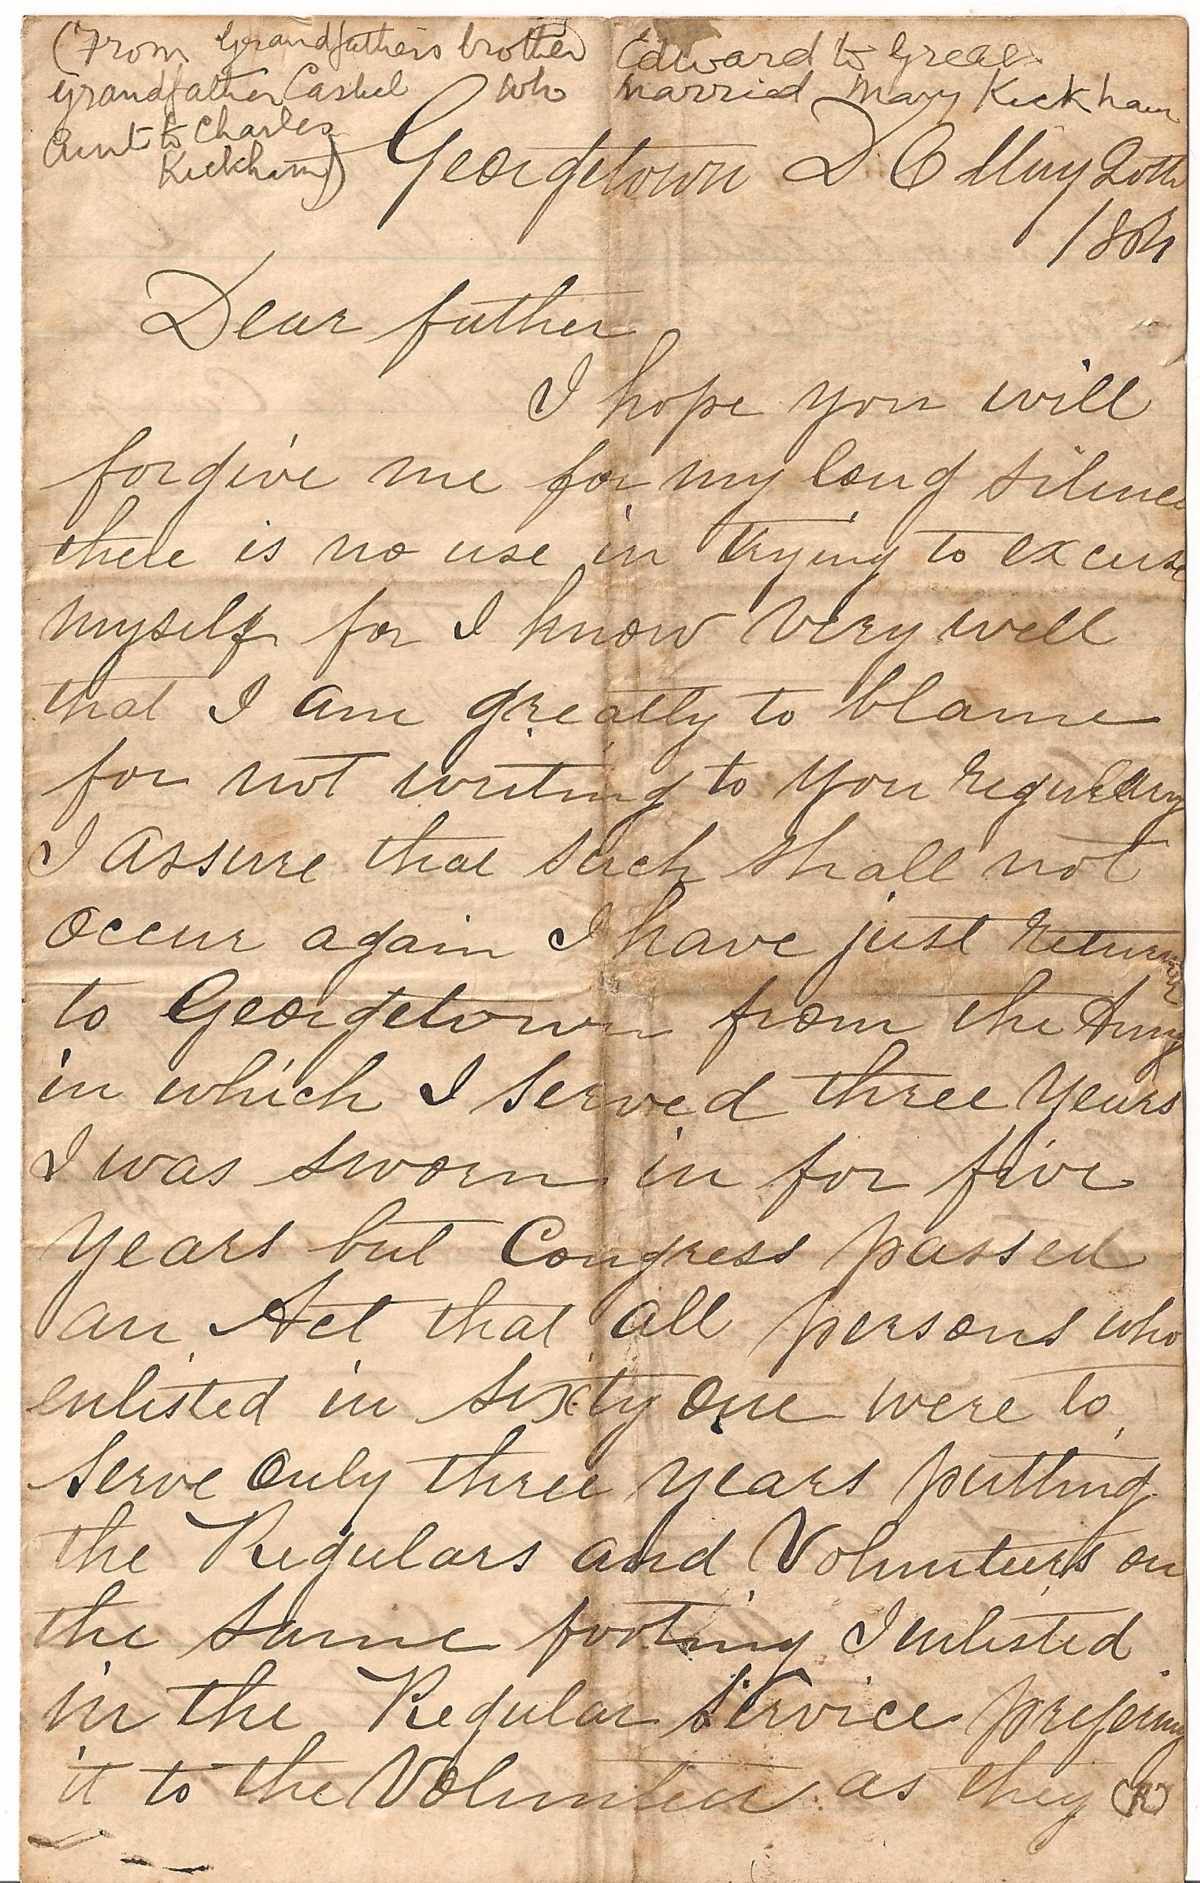 (From Grandfathers brother Edward to Great
grandfather Cashel who married Mary Kickham
Aunt to Charles
Kickham)
Georgetown D C May 20th
1864
Dear father
I hope you will
forgive me for my long silence
there is no use in trying to excuse
myself for I know very well
that I am greatly to blame
for not writing to you regularly
I assure that such shall not
occur again I have just returned
to Georgetown from the Army
in which I served three years
I was sworn in for five
years but Congress passed
an Act that all persons who
enlisted in sixty one were to
serve only three years putting
the Regulars and Volunteers on
the same footing I enlisted
in the Regular Service prefering
it to the Volunteer as they